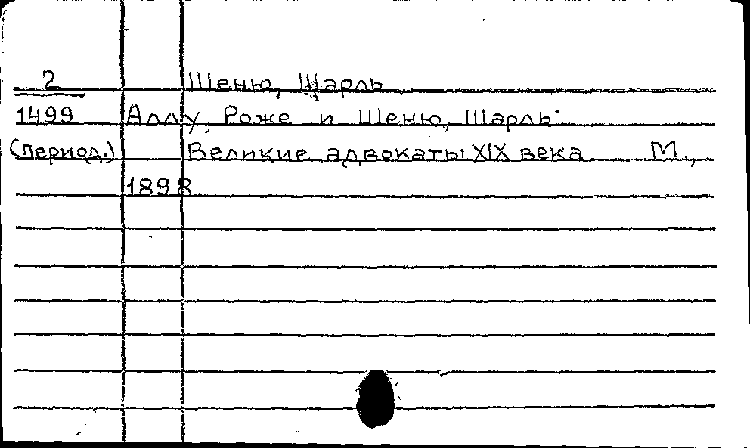 2 Шеню, Шарль
1499 Аллу, Роже и Шеню, Шарль
(период.) Великие адвокаты XIX века М.,
1898